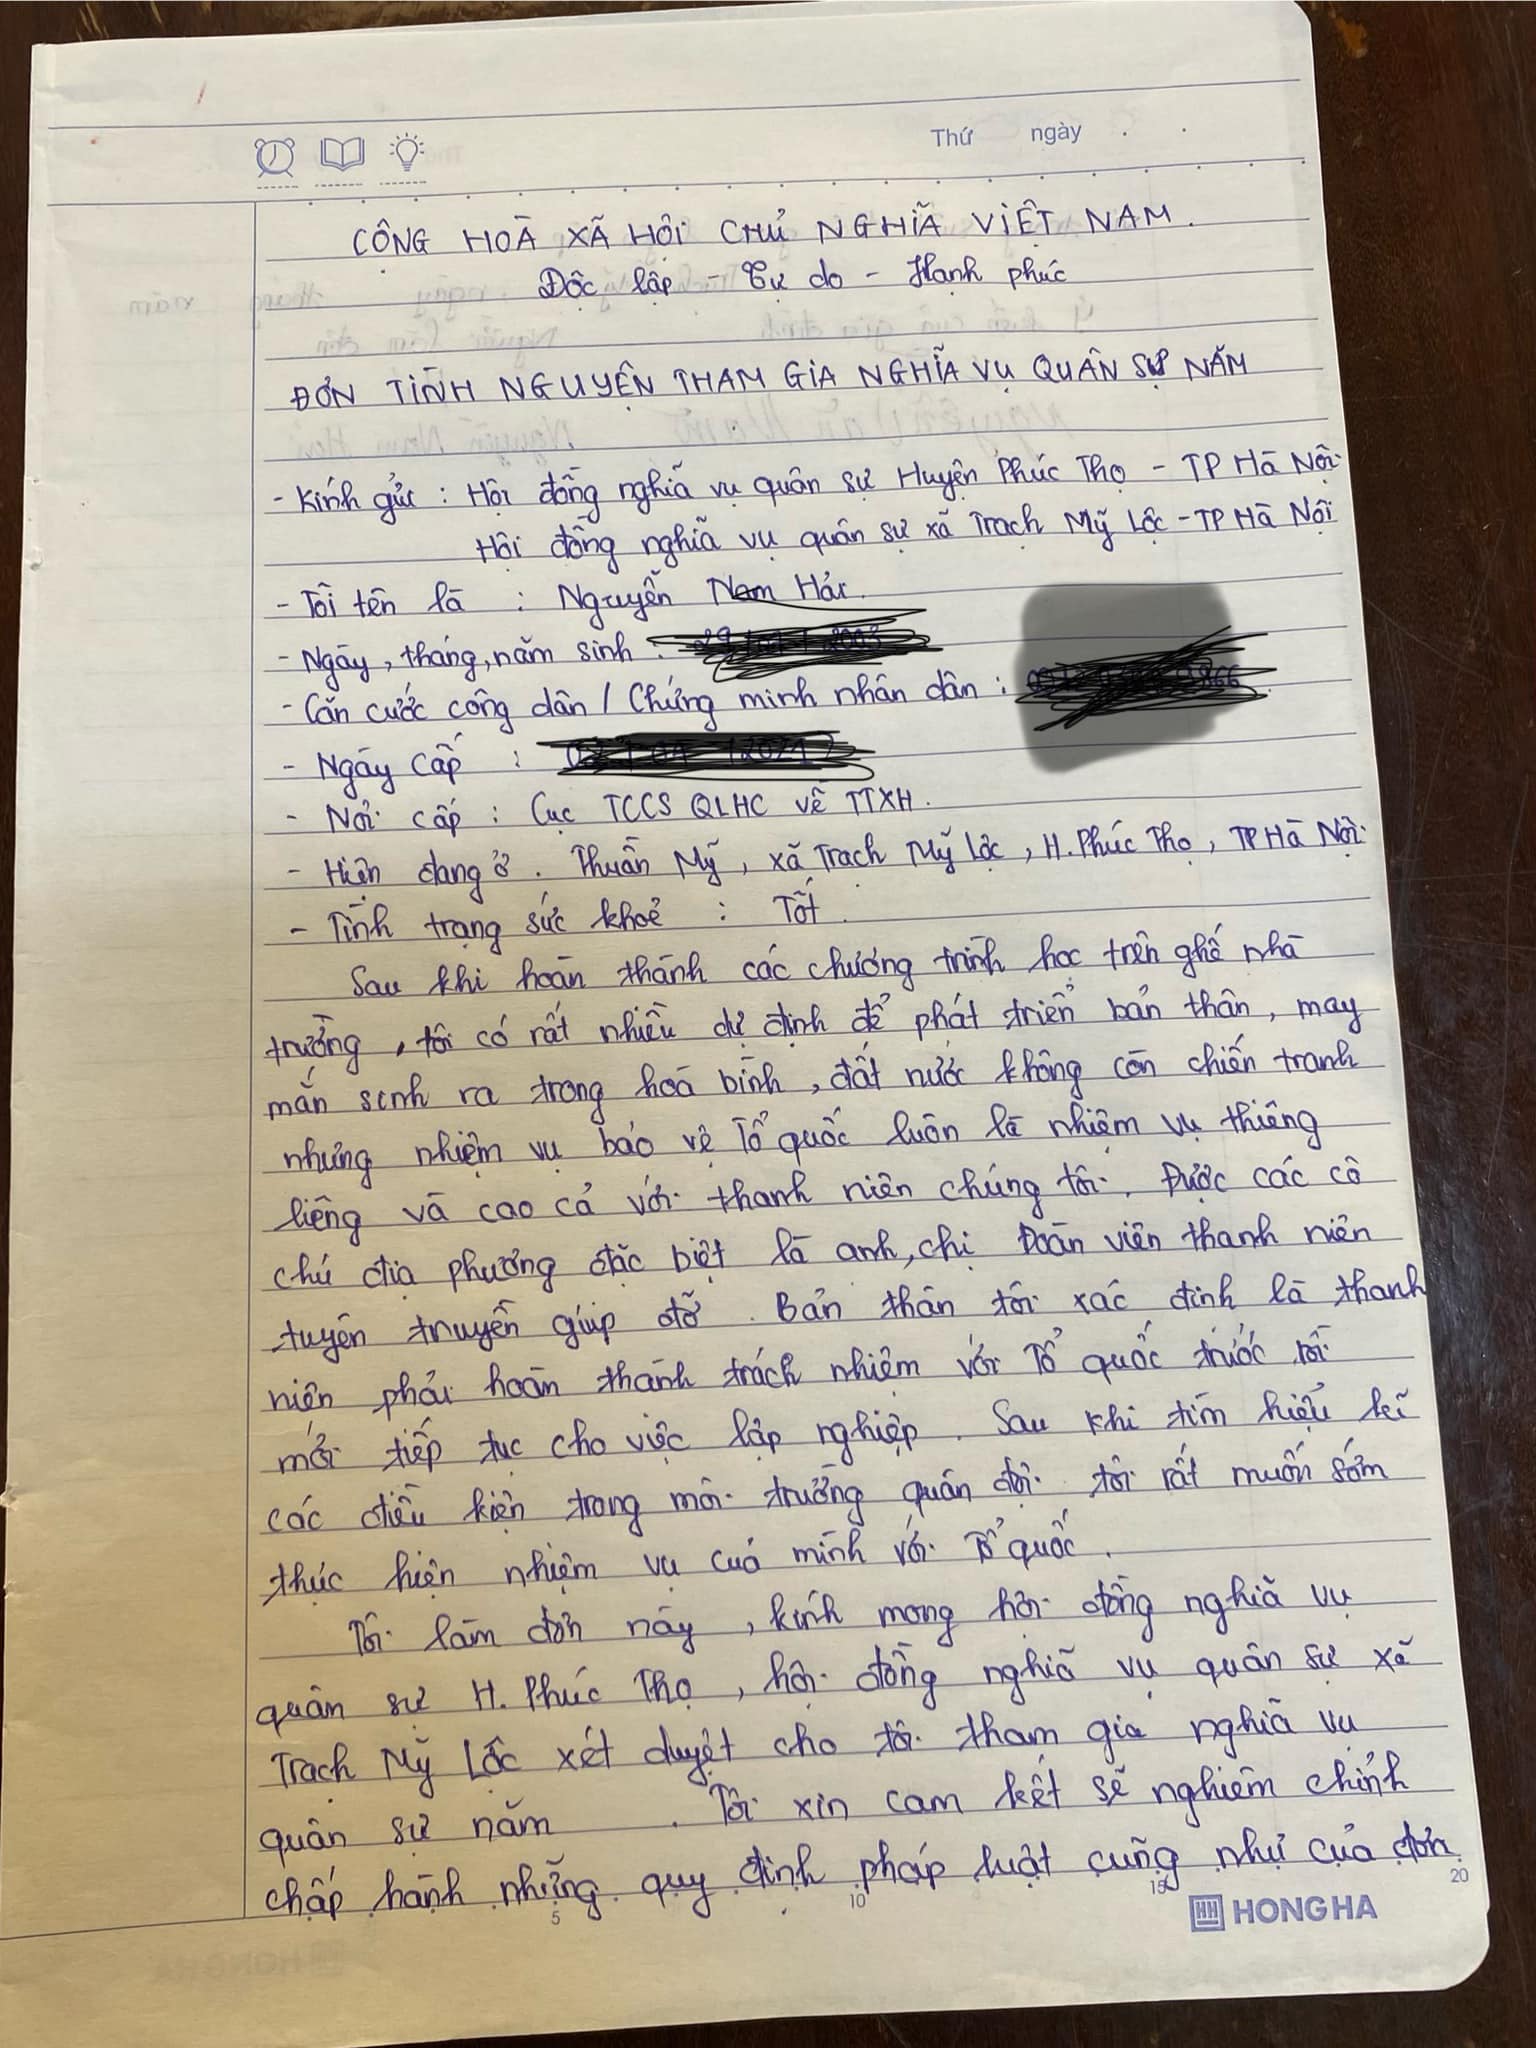 Thứ ngày
CỘNG HOÀ XÃ HỘI CHỦ NGHĨA VIỆT NAM.
Độc lập - Tự do - Hạnh phúc
ĐƠN TÌNH NGUYỆN THAM GIA NGHĨA VỤ QUÂN SỰ NĂM
- Kính gửi : Hội đồng nghĩa vụ quân sự Huyện Phúc Thọ - TP Hà Nội
Hội đồng nghĩa vụ quân sự xã Trạch Mỹ Lộc - TP Hà Nội
- Tôi tên là : Nguyễn Nam Hải.
- Ngày, tháng, năm sinh :
- Căn cước công dân / Chứng minh nhân dân :
- Ngày cấp :
- Nơi cấp : Cục TCCS QLHC về TTXH.
- Hiện đang ở. Thuần Mỹ, xã Trạch Mỹ Lộc, H. Phúc Thọ, TP Hà Nội.
- Tình trạng sức khoẻ : Tốt.
Sau khi hoàn thành các chương trình học trên ghế nhà
trường, tôi có rất nhiều dự định để phát triển bản thân, may
mắn sinh ra trong hoà bình, đất nước không còn chiến tranh
nhưng nhiệm vụ bảo vệ Tổ quốc luôn là nhiệm vụ thiêng
liêng và cao cả với thanh niên chúng tôi. Được các cô
chú địa phương đặc biệt là anh, chị Đoàn viên thanh niên
tuyên truyền giúp đỡ. Bản thân tôi xác định là thanh
niên phải hoàn thành trách nhiệm với Tổ quốc trước rồi
mới tiếp tục cho việc lập nghiệp. Sau khi tìm hiểu kĩ
các điều kiện trong môi trường quân đội tôi rất muốn sớm
thực hiện nhiệm vụ của mình với Tổ quốc.
Tôi làm đơn này, kính mong hội đồng nghĩa vụ
quân sự H. Phúc Thọ, hội đồng nghĩa vụ quân sự xã
Trạch Mỹ Lộc xét duyệt cho tôi tham gia nghĩa vụ
quân sự năm . Tôi xin cam kết sẽ nghiêm chỉnh
chấp hành những quy định pháp luật cũng như của đơn
5 10 15 20
HONG HA